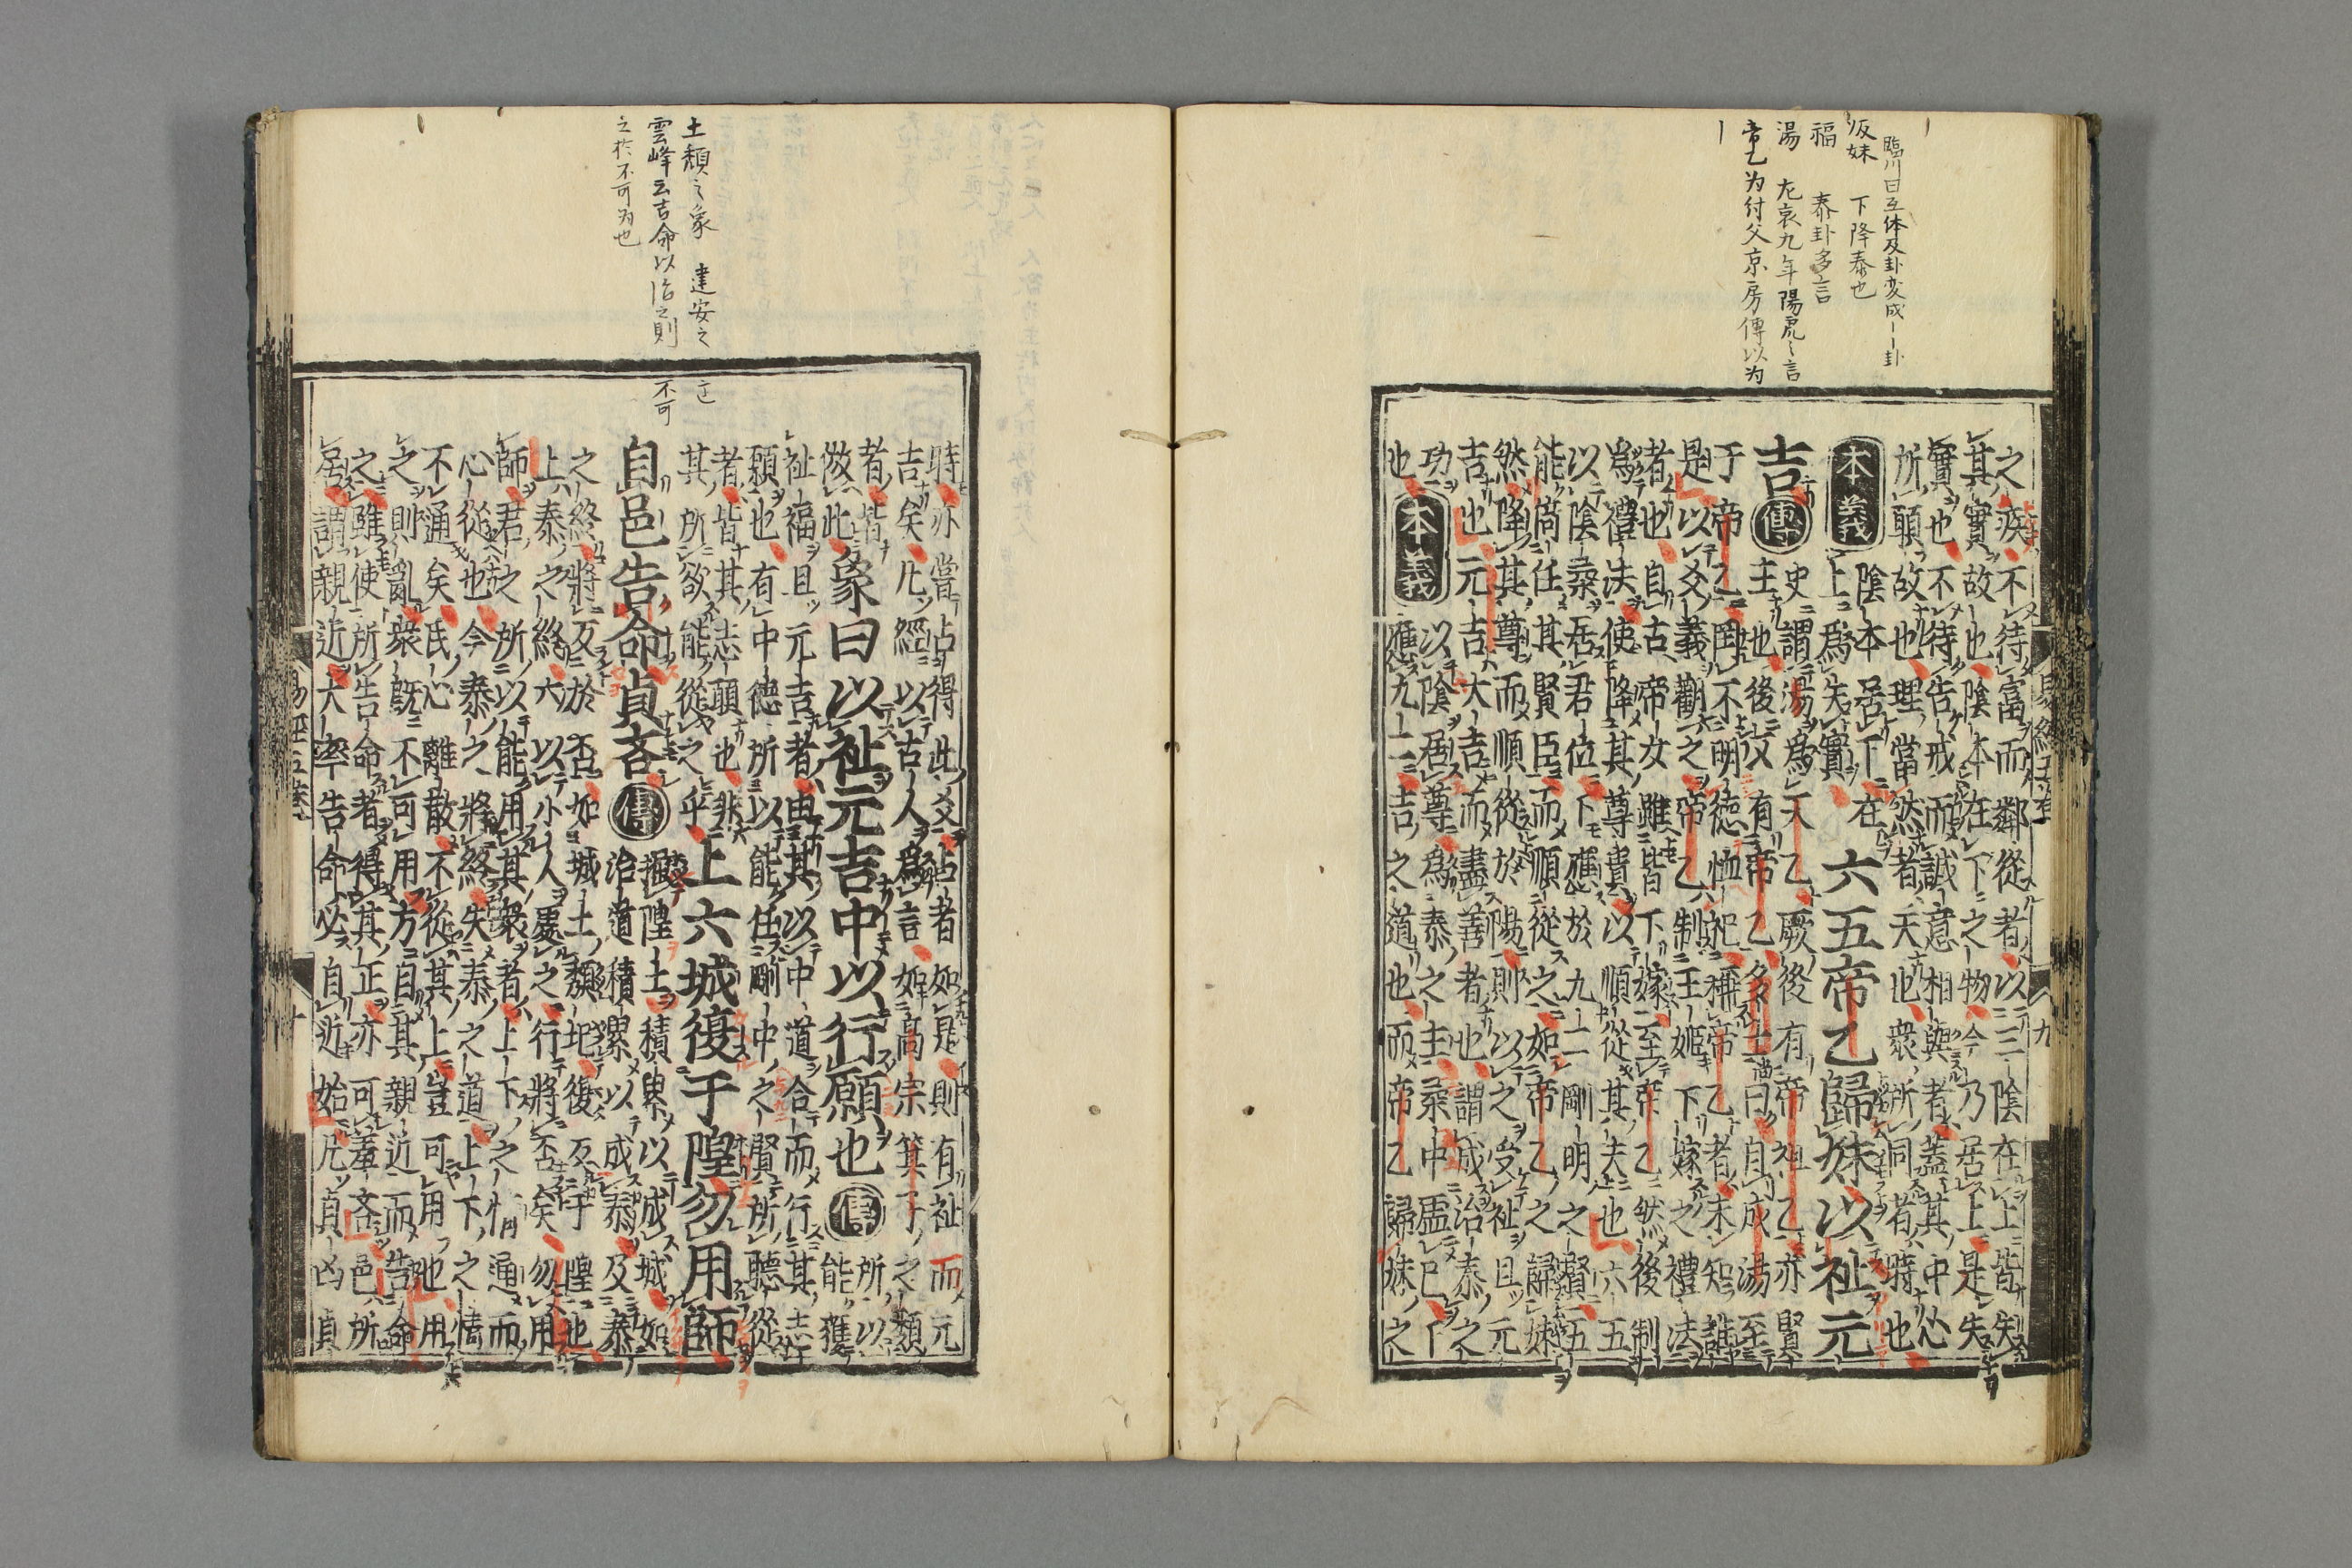 臨川曰互体及卦変成ー卦
下降泰也
福 泰卦多言
湯 左哀九年陽虎之言
帝乙为紂父京房傳以为
之疾不待富而鄰從者以三陰在上皆失
其實故也陰本在下之物今乃居上是失
實也不待告戒而誠意相與者蓋其中心
所願故也理當然者天也衆所同者時也
本義
陰本居下在
上爲失實
六五帝乙歸妹以祉元
吉
傳
史謂湯爲天乙厥後有帝祖乙亦賢
主也後又有帝乙多士曰自成湯至
于帝乙罔不明徳恤祀稱帝乙者未知誰
是以爻義觀之帝乙制王姬下嫁之禮法
者也自古帝女雖皆下嫁至帝乙然後制
爲禮法使降其尊貴以順從其夫也六五
以陰柔居君位下應於九二剛明之賢五
能倚任其賢臣而順從之如帝乙之歸妹
然降其尊而順從於陽則以之受祉且元
吉也元吉大吉而盡善者也謂成治泰之
功
本義
以陰居尊爲泰之主柔中虛己下
也
應九二吉之道也而帝乙歸妹之
易經五卷
九
土頽之象 建安之
雲峰云吉命以治之則
之於不可为也
不可
時亦嘗占得此爻占者如是則有祉而元
吉矣凡經以古人爲言如高宗箕子之類
者皆
倣此
象曰以祉元吉中以行願也
傳
所以
能獲
祉福且元吉者由其以中道合而行其志
願也有中德所以能任剛中之賢所聽從
者皆其志願也非
其所欲能從之乎
上六城復于隍勿用師
自邑告命貞吝
傳
掘隍土積累以成城如
治道積累以成泰及泰
之終將反於否如城土頽圯復反于隍也
上泰之終六以小人處之行將否矣勿用
師君之所以能用其衆者上下之情通而
心從也今泰之將終失泰之道上下之情
不通矣民心離散不從其上豈可用也用
之則亂衆既不可用方自其親近而告命
之雖使所告命者得其正亦可羞吝邑所
居謂親近大率告命必自近始凡貞凶貞
易經五卷